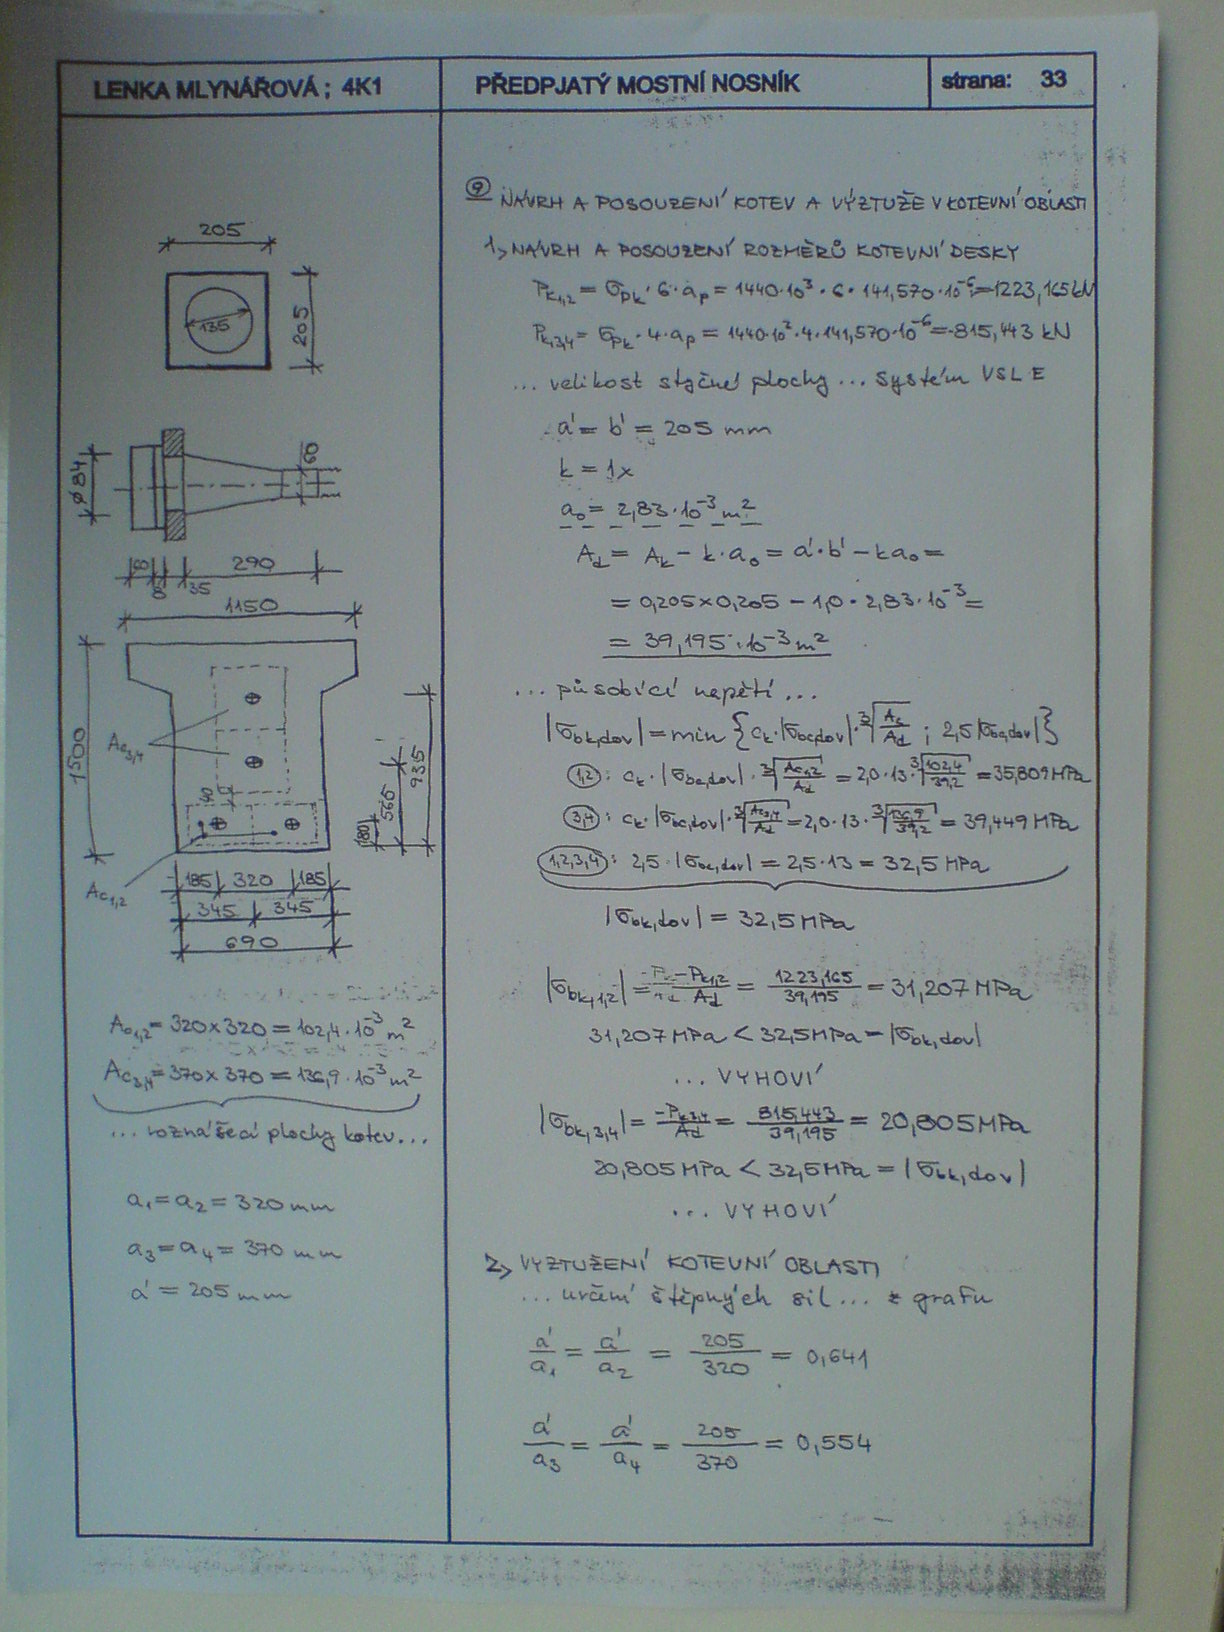 LENKA MLYNÁŘOVÁ ; 4K1
PŘEDPJATÝ MOSTNÍ NOSNÍK
strana: 33
205
205
135
ø84
60
18
8
35
290
1150
1500
Ac3,4
935
565
180
Ac1,2
185 320 185
345 345
690
Ac1,2 = 320x320 = 102,4·10⁻³ m²
Ac3,4 = 370x370 = 136,9·10⁻³ m²
... roznášecí plochy kotev...
a₁ = a₂ = 320 mm
a₃ = a₄ = 370 mm
a' = 205 mm
⑨ NÁVRH A POSOUZENÍ KOTEV A VÝZTUŽE V KOTEVNÍ OBLASTI
1, NÁVRH A POSOUZENÍ ROZMĚRŮ KOTEVNÍ DESKY
Pk1,2 = σpk · 6 · ap = 1440·10³ · 6 · 141,570·10⁻⁶ = -1223,165 kN
Pk,3,4 = σpk · 4 · ap = 1440·10³ · 4 · 141,570·10⁻⁶ = -815,443 kN
... velikost styčné plochy ... systém VSL E
a' = b' = 205 mm
k = 1x
a₀ = 2,83·10⁻³ m²
Ad = Ak - k·a₀ = a'·b' - ka₀ =
= 0,205x0,205 - 1,0 · 2,83·10⁻³ =
= 39,195·10⁻³ m²
... působící napětí ...
|σbk,dov| = min {ck·|σbc,dov|·³√(Ac/Ad) ; 2,5|σbc,dov|}
(1,2) : ck·|σbc,dov|·³√(Ac1,2/Ad) = 2,0·13·³√(102,4/39,2) = 35,809 MPa
(3,4) : ck·|σbc,dov|·³√(Ac3,4/Ad) = 2,0·13·³√(136,9/39,2) = 39,449 MPa
(1,2,3,4) : 2,5·|σbc,dov| = 2,5·13 = 32,5 MPa
|σbk,dov| = 32,5 MPa
|σbk,1,2| = -Pk1,2/Ad = 1223,165/39,195 = 31,207 MPa
31,207 MPa < 32,5 MPa = |σbk,dov|
... VYHOVÍ
|σbk,3,4| = -Pk3,4/Ad = 815,443/39,195 = 20,805 MPa
20,805 MPa < 32,5 MPa = |σbk,dov|
... VYHOVÍ
2, VYZTUŽENÍ KOTEVNÍ OBLASTI
... určení štěpných sil ... z grafu
a'/a₁ = a'/a₂ = 205/320 = 0,641
a'/a₃ = a'/a₄ = 205/370 = 0,554